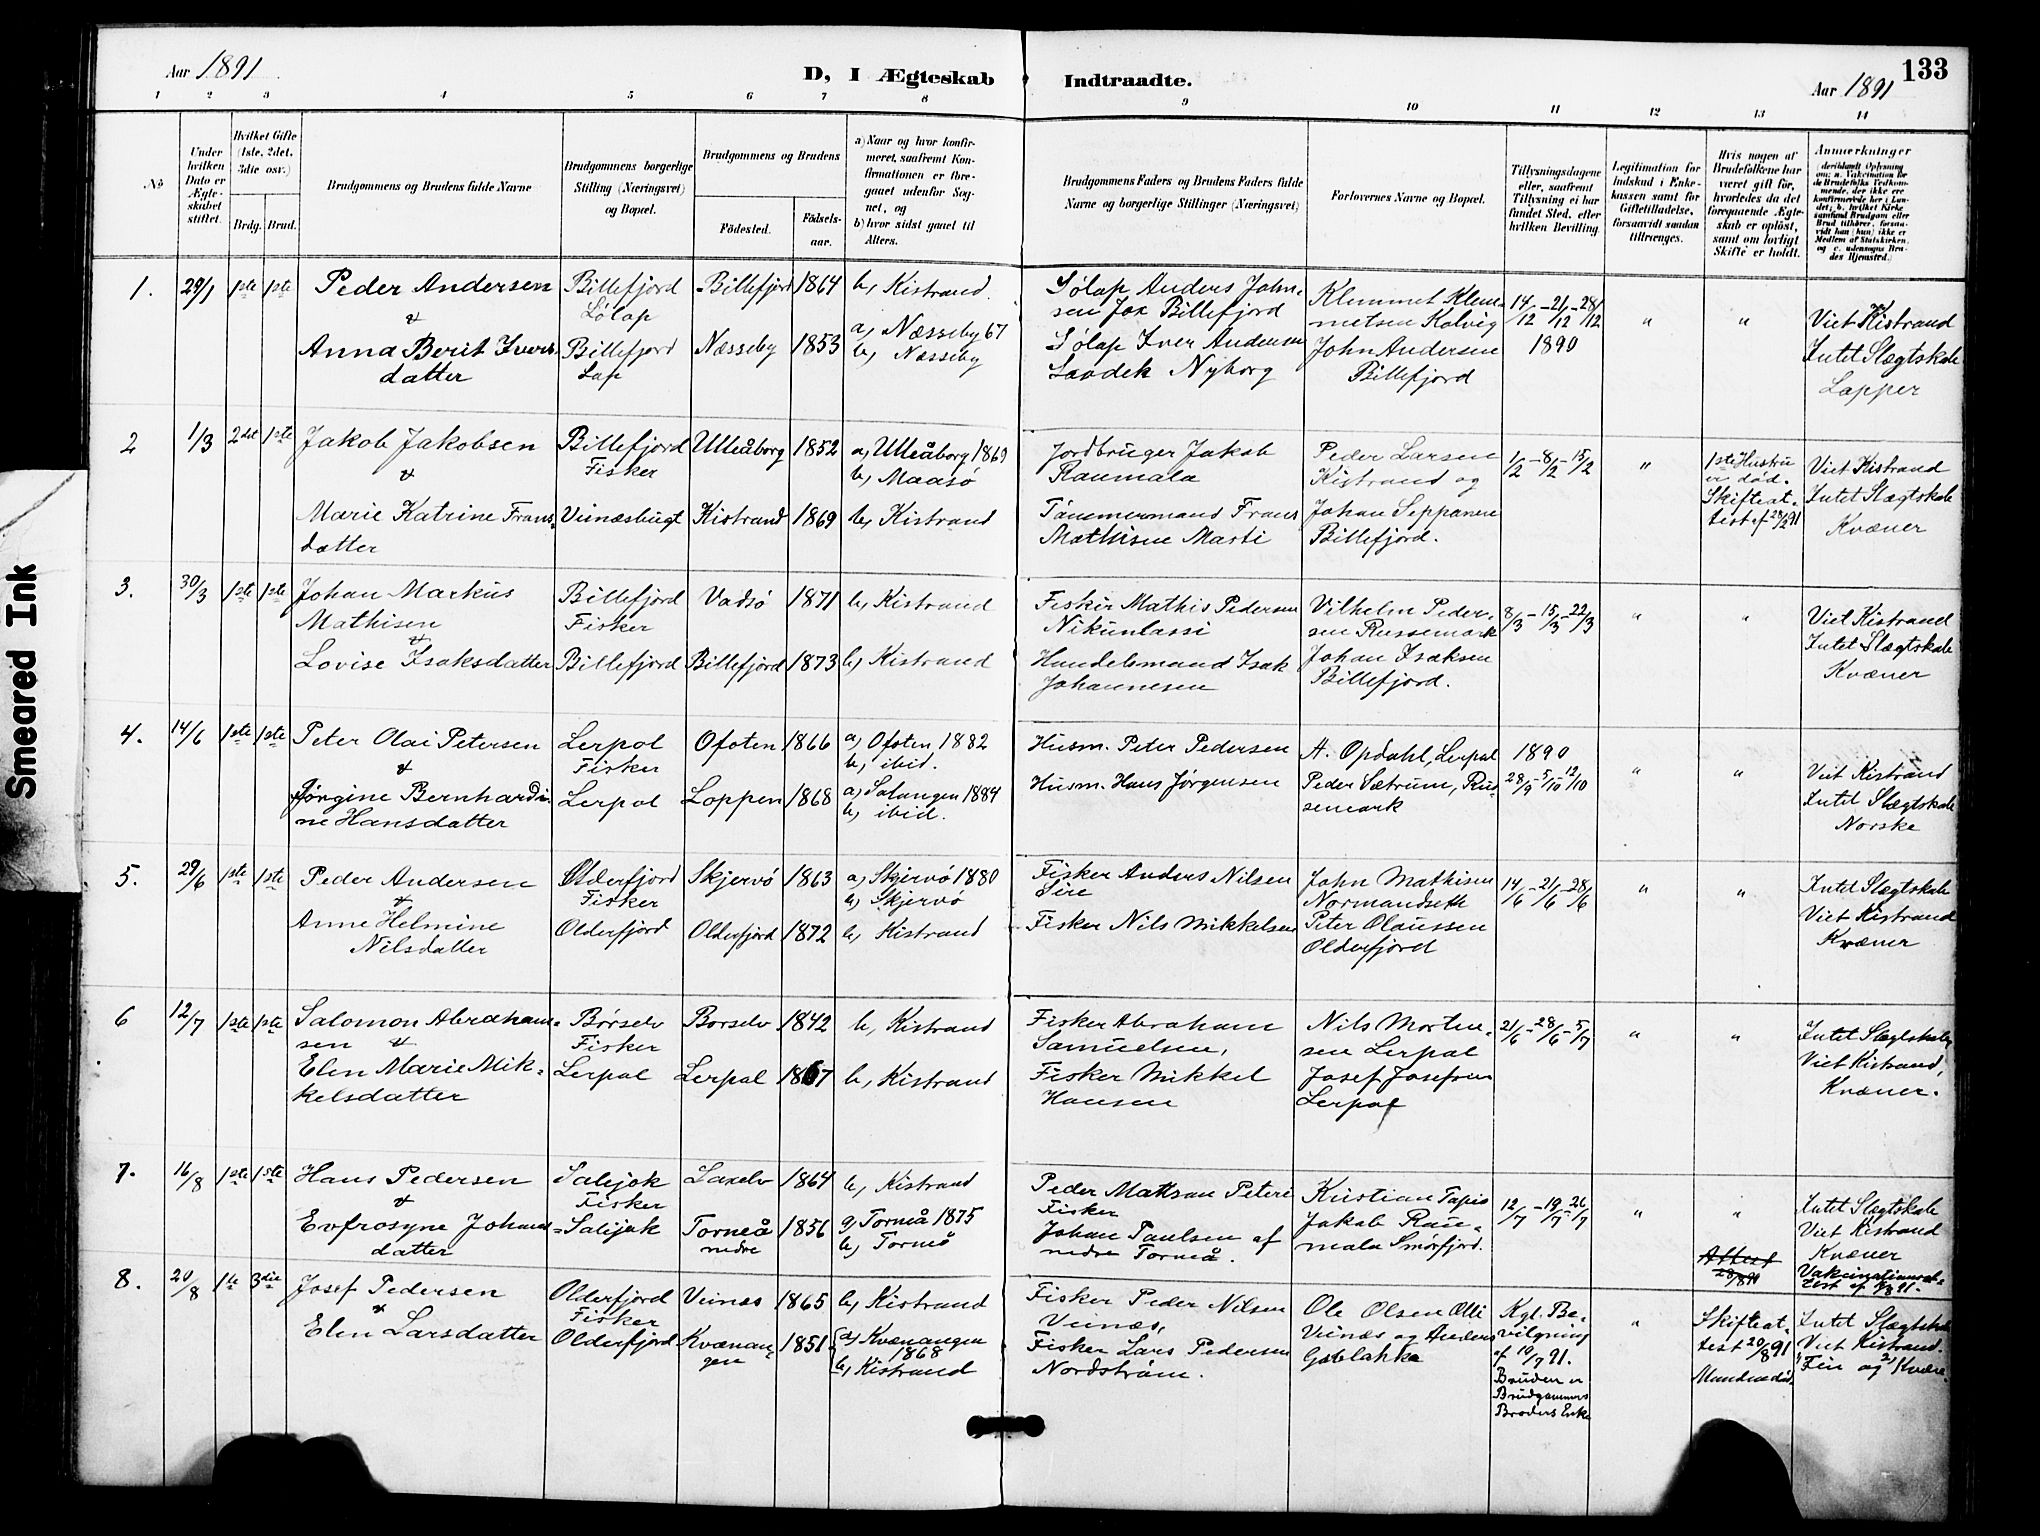 Aar 1891
D, I Ægteskab
Indtraadte.
Aar 1891
133
1 2 3 4 5 6 7 8 9 10 11 12 13 14
No
Under hvilken Dato er Ægteskabet stiftet.
Hvilket Gifte (1ste, 2det, 3die osv.)
Brdg. Brud.
Brudgommens og Brudens fulde Navne
Brudgommens borgerlige Stilling (Næringsvei) og Bopæl.
Brudgommens og Brudens
Födested.
Födsels-aar.
a) Naar og hvor konfirmeret, saafremt Konfirmationen er foregaaet udenfor Sognet, og
b) hvor sidst gaaet til Alters.
Brudgommens Faders og Brudens Faders fulde Navne og borgerlige Stillinger (Næringsvei)
Forlovernes Navne og Bopæl.
Tillysningsdagene eller, saafremt Tillysning ei har fundet Sted, efter hvilken Bevilling.
Legitimation for Indskud i Enkekassen samt for Giftetilladelse, forsaavidt saadan tiltrænges.
Hvis nogen af Brudefolkene har været gift för, hvorledes da det foregaaende Ægteskab er oplöst, samt om lovligt Skifte er holdt.
Anmærkninger
(deriblandt Oplysning om: a. Vakcination for de Brudefolks Vedkommende, der ikke ere konfirmerede her i Landet; b. hvilket Kirkesamfund Brudgom eller Brud tilhörer, forsaavidt han (hun) ikke er Medlem af Statskirken, og c. udensogns Brudes Hjemsted.)
1. 29/1 1ste 1ste Peder Andersen Billefjord Billefjord 1864 b, Kistrand.
& Sølap
Anna Berit Ivers- Billefjord Næsseby 1853 a, Næsseby 67
datter Lap b, Næsseby
Sølap Anders John- Klemmet Klem- 14/12-21/12-28/12 " " Viet Kistrand
sen Jox Billefjord metsen Kolvig 1890
Sølap Iver Andersen John Andersen Intet Slægtskab
Saadek Nyborg Billefjord Lapper
2 1/3 2det 1ste Jakob Jakobsen Billefjord Uleåborg 1852 a, Uleåborg 1869
& Fisker b, Maasø
Marie Katrine Frans- Viinæsbugt Kistrand 1869 b, Kistrand
datter
Jordbruger Jakob Peder Larsen 1/2-8/2-15/2 " 1ste Hustru Viet Kistrand
Raumala Kistrand og er død. Intet Slægtskab
Tømmermand Frans Johan Seppänen Skifteat- Kvæner
Mathisen Marti Billefjord. test af 28/2 91
3. 30/3 1ste 1ste Johan Markus Billefjord Vadsø 1871 b, Kistrand
Mathisen Fisker
&
Lovise Isaksdatter Billefjord Billefjord 1873 b, Kistrand
Fisker Mathis Pedersen Vilhelm Peder- 8/3-15/3-22/3 " " Viet Kistrand
Nikunlassi sen Russemark Intet Slægtskab
Handelsmand Isak Johan Isaksen Kvæner
Johannesen Billefjord.
4. 14/6 1ste 1ste Peter Olai Petersen Lerpol Ofoten 1866 a, Ofoten, 1882
& Fisker b, ibid.
Jørgine Bernhardi- Lerpol Loppen 1868 a, Salangen 1884
ne Hansdatter b, ibid.
Husm. Peter Pedersen A. Opdahl, Lerpol 1890 " " Viet Kistrand
Husm. Hans Jørgensen Peder Sætrum, Rus- 28/9-5/10-12/10 Intet Slægtskab
semark Norske
5. 29/6 1ste 1ste Peder Andersen Olderfjord Skjervø 1863 a, Skjervø 1880
& Fisker b, Skjervø
Anne Helmine Olderfjord Olderfjord 1872 b, Kistrand
Nilsdatter
Fisker Anders Nilsen John Mathisen 14/6-21/6-28/6 " " Intet Slægtskab
Sire Normandseth Viet Kistrand
Fisker Nils Mikkelsen Peter Olaussen Kvæner
Olderfjord
6 12/7 1ste 1ste Salomon Abraham- Børselv Børselv 1842 b, Kistrand
sen & Fisker
Elen Marie Mik- Lerpol Lerpol 1867 b, Kistrand
kelsdatter
Fisker Abraham Nils Morten- 21/6-28/6-5/7 " " Intet Slægtskab,
Samuelsen, sen Lerpol Viet Kistrand,
Fisker Mikkel Josef Josefsen Kvæner.
Hansen Lerpol
7. 16/8 1ste 1ste Hans Pedersen Salijok Laxelv 1864 b, Kistrand
& Fisker
Evfrosyne Johans- Salijok Torneå 1856 a, Torneå 1875
datter nedre b, Torneå
Peder Mattson Peteri Kristian Tapio 12/7-19/7-26/7 " " Intet Slægtskab
Fisker Jakob Rau- Viet Kistrand
Johan Paulsen af mala Smørfjord. Attest Kvæner
nedre Torneå. 28/8 91 Vakcinationsat-
test af 8/8 91.
8. 20/8 1ste 3die Josef Pedersen Olderfjord Viinæs 1865 b, Kistrand
& Fisker
Elen Larsdatter Olderfjord Kvænan- 1851 a, Kvænangen
gen 1868
b, Kistrand
Fisker Peder Nilsen Ole Olsen Ølli Kgl. Be- " Skifteat- Intet Slægtskab
Viinæs, Viinæs og Anders vilgning test 20/8 91 Viet Kistrand.
Fisker Lars Pedersen af 10/7 91. Manden død. Fin og Kvæn
Nordstrøm. Bruden er
Brudgommens
Broders Enke
Smeared Ink